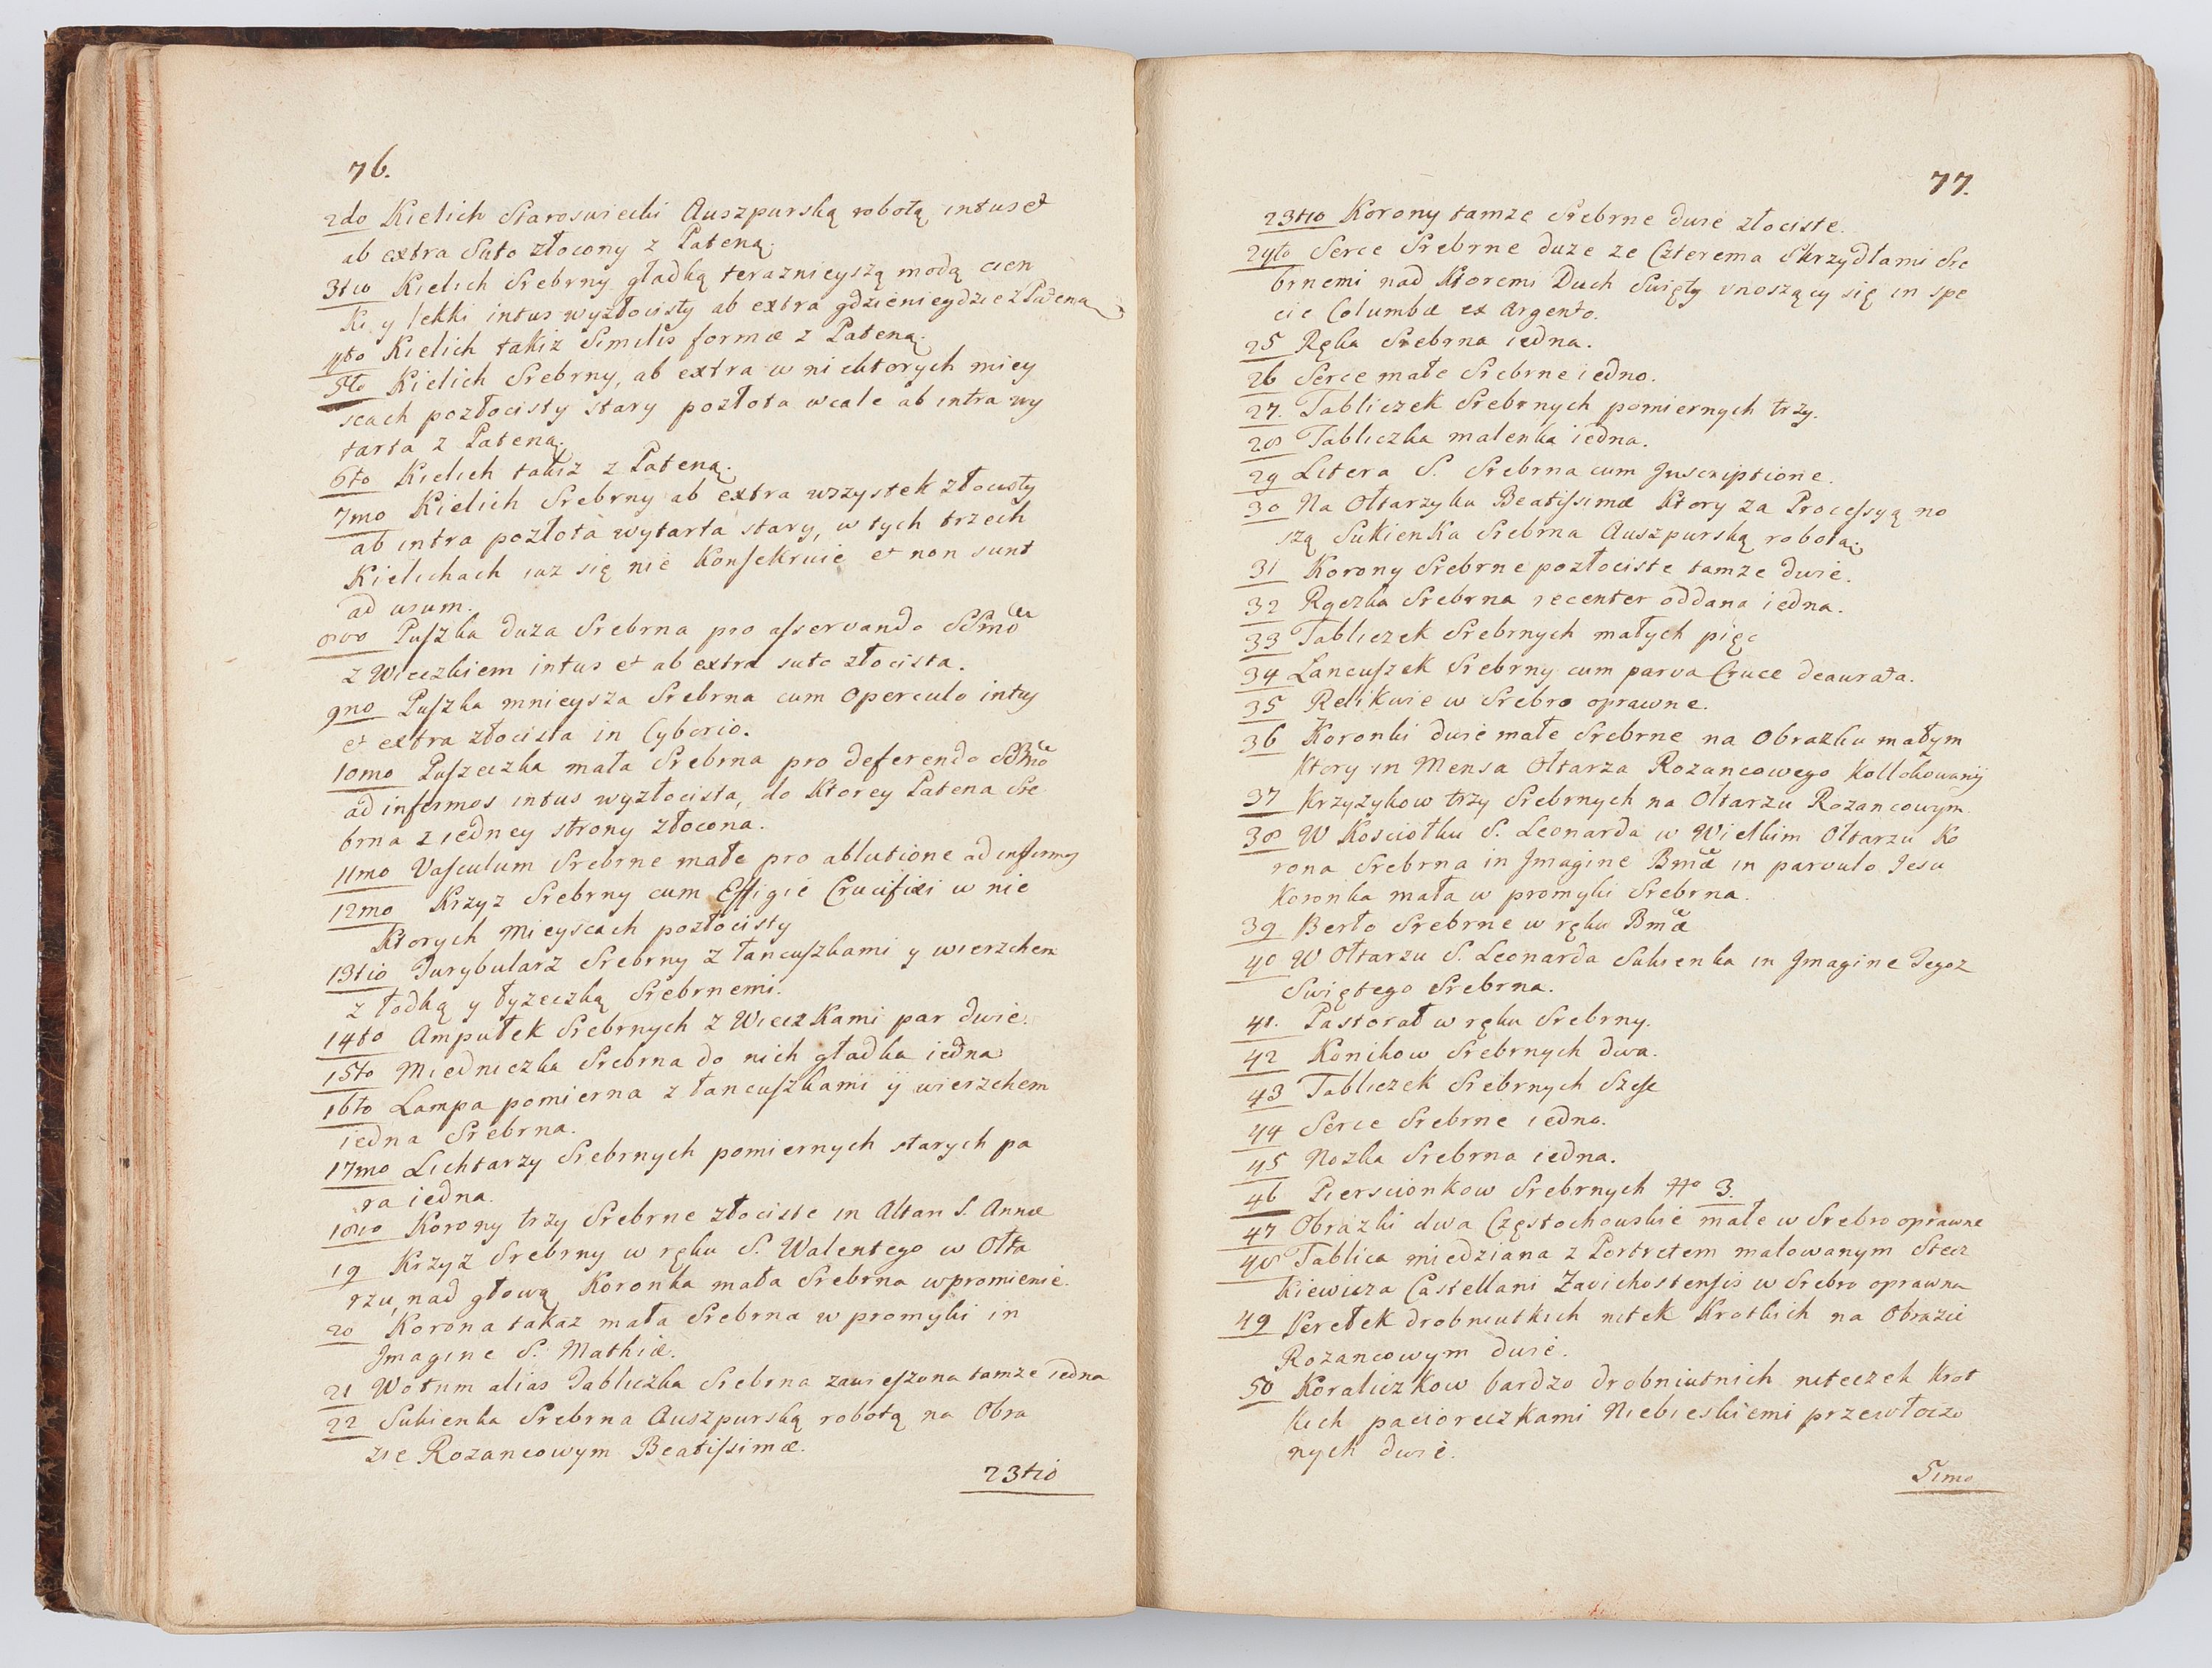 76.
2do Kielich Staroswiecki Auszpurską robotą intus et
ab extra Suto złocony z Pateną.
3tio Kielich Srebrny gładką teraznieyszą modą cien
ki y lekki intus wyzłocisty ab extra gdzieniegdzie z Pateną
4to Kielich takiz Similis formæ z Pateną.
5to Kielich Srebrny, ab extra w niektorych miey
scach pozłocisty stary pozłota wcale ab intra wy
tarta z Pateną.
6to Kielich takiz z Pateną.
7mo Kielich Srebrny ab extra wszystek złocisty
ab intra pozłota wytarta stary, w tych trzech
Kielichach iuz się nie Konsekruie et non sunt
ad usum.
8vo Puszka duza Srebrna pro asservando SSmo
z Wieczkiem intus et ab extra suto złocista.
9no Puszka mnieysza Srebrna cum Operculo intus
et extra złocista in Cyborio.
10mo Puszeczka mała Srebrna pro deferendo SSmo
ad infirmos intus wyzłocista, do Ktorey Patena Sre
brna z iedney strony złocona.
11mo Vasculum Srebrne małe pro ablutione ad infirmos
12mo Krzyz Srebrny cum Effigie Crucifixi w nie
Ktorych Mieyscach pozłocisty
13tio Turybularz Srebrny z łancuszkami y wierzchem
z łodką y łyzeczką Srebrnemi.
14to Ampułek Srebrnych z Wieczkami par dwie.
15to Miedniczka Srebrna do nich gładka iedna
16to Lampa pomierna z łancuszkami ÿ wierzchem
iedna Srebrna.
17mo Lichtarzy Srebrnych pomiernych starych pa
ra iedna.
18vo Korony trzy Srebrne złociste in Altari S. Annæ
19 Krzyz Srebrny w ręku S. Walentego w Ołta
rzu, nad głową Koronka mała Srebrna w promienie.
20 Korona takaz mała Srebrna w promyki in
Imagine S. Mathiæ.
21 Wotum alias Tabliczka Srebrna zawieszona tamze iedna
22 Sukienka Srebrna Auszpurską robotą na Obra
zie Rozancowym Beatissimæ.
23tio
77.
23tio Korony tamze Srebrne dwie złociste.
24to Serce Srebrne duze ze Czterema Skrzydłami Sre
brnemi nad Ktoremi Duch Swięty vnoszący się in spe
cie Columbæ ex argento.
25 Ręka Srebrna iedna.
26 Serce małe Srebrne iedno.
27. Tabliczek Srebrnych pomiernych trzy.
28 Tabliczka malenka iedna.
29 Litera S. Srebrna cum Inscriptione.
30 Na Ołtarzyku Beatissimæ Ktory za Processyą no
szą Sukienka Srebrna Auszpurską robotą.
31 Korony Srebrne pozłociste tamze dwie.
32 Rączka Srebrna recenter oddana iedna.
33 Tabliczek Srebrnych małych pięc
34 Lancuszek Srebrny cum parva Cruce deaurata.
35 Relikwie w Srebro oprawne.
36 Koronki dwie małe Srebrne na Obrazku małym
Ktory in Mensa Ołtarza Rozancowego Kollokowanÿ
37 Krzyzykow trzy Srebrnych na Ołtarzu Rozancowym
38 W Kosciołku S. Leonarda w Wielkim Ołtarzu Ko
rona Srebrna in Imagine Bmæ in parvulo Jesu
Koronka mała w promyki Srebrna.
39 Berło Srebrne w ręku Bmæ
40 W Ołtarzu S. Leonarda Sukienka in Imagine Tegoz
Swiętego Srebrna.
41. Pastorał w ręku Srebrny.
42 Konikow Srebrnych dwa.
43 Tabliczek Srebrnych Szesc
44 Serce Srebrne iedno.
45 Nozka Srebrna iedna.
46 Pierscionkow Srebrnych No 3.
47 Obrazki dwa Częstochowskie małe w Srebro oprawne
48 Tablica miedziana z Portretem malowanym Stec
kiewicza Castellani Zavichostensis w Srebro oprawna
49 Perełek drobniutkich nitek Krotkich na Obrazie
Rozancowym dwie.
50 Koraliczkow bardzo drobniutnich niteczek Krot
kich pacioreczkami Niebieskiemi przewłoczo
nych dwie.
51mo